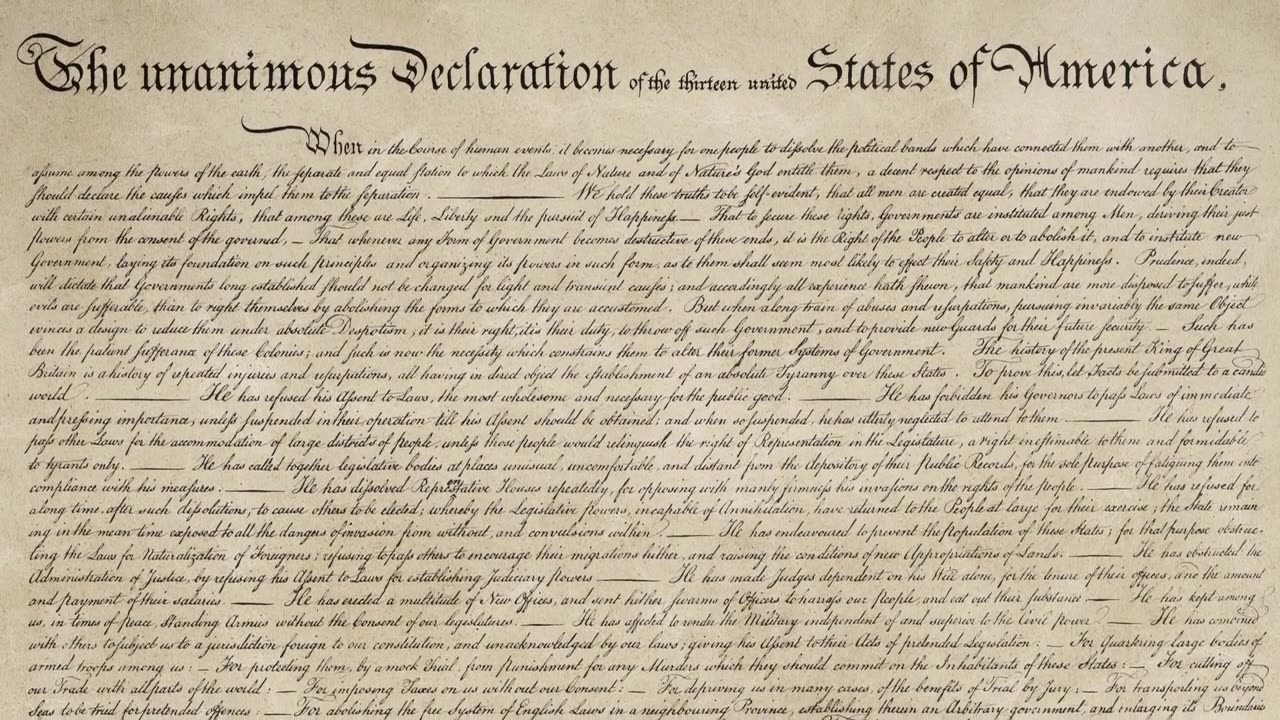 The unanimous Declaration of the thirteen united States of America.
When in the Course of human events, it becomes necessary for one people to dissolve the political bands which have connected them with another, and to
assume among the powers of the earth, the separate and equal station to which the Laws of Nature and of Nature's God entitle them, a decent respect to the opinions of mankind requires that they
should declare the causes which impel them to the separation. ——— We hold these truths to be self-evident, that all men are created equal, that they are endowed by their Creator
with certain unalienable Rights, that among these are Life, Liberty and the pursuit of Happiness.— That to secure these rights, Governments are instituted among Men, deriving their just
powers from the consent of the governed, — That whenever any Form of Government becomes destructive of these ends, it is the Right of the People to alter or to abolish it, and to institute new
Government, laying its foundation on such principles and organizing its powers in such form, as to them shall seem most likely to effect their Safety and Happiness. Prudence, indeed,
will dictate that Governments long established should not be changed for light and transient causes; and accordingly all experience hath shewn, that mankind are more disposed to suffer, while
evils are sufferable, than to right themselves by abolishing the forms to which they are accustomed. But when a long train of abuses and usurpations, pursuing invariably the same Object
evinces a design to reduce them under absolute Despotism, it is their right, it is their duty, to throw off such Government, and to provide new Guards for their future security. — Such has
been the patient sufferance of these Colonies; and such is now the necessity which constrains them to alter their former Systems of Government. The history of the present King of Great
Britain is a history of repeated injuries and usurpations, all having in direct object the establishment of an absolute Tyranny over these States. To prove this, let Facts be submitted to a candid
world. ——— He has refused his Assent to Laws, the most wholesome and necessary for the public good. ——— He has forbidden his Governors to pass Laws of immediate
and pressing importance, unless suspended in their operation till his Assent should be obtained; and when so suspended, he has utterly neglected to attend to them. ——— He has refused to
pass other Laws for the accommodation of large districts of people, unless those people would relinquish the right of Representation in the Legislature, a right inestimable to them and formidable
to tyrants only. ——— He has called together legislative bodies at places unusual, uncomfortable, and distant from the depository of their Public Records, for the sole purpose of fatiguing them into
compliance with his measures. ——— He has dissolved Representative Houses repeatedly, for opposing with manly firmness his invasions on the rights of the people. ——— He has refused for
a long time, after such dissolutions, to cause others to be elected; whereby the Legislative powers, incapable of Annihilation, have returned to the People at large for their exercise; the State remain
ing in the mean time exposed to all the dangers of invasion from without, and convulsions within. ——— He has endeavoured to prevent the population of these States; for that purpose obstruc-
ting the Laws for Naturalization of Foreigners; refusing to pass others to encourage their migrations hither, and raising the conditions of new Appropriations of Lands. ——— He has obstructed the
Administration of Justice, by refusing his Assent to Laws for establishing Judiciary powers. ——— He has made Judges dependent on his Will alone, for the tenure of their offices, and the amount
and payment of their salaries. ——— He has erected a multitude of New Offices, and sent hither swarms of Officers to harrass our people, and eat out their substance. ——— He has kept among
us, in times of peace, Standing Armies without the Consent of our legislatures. ——— He has affected to render the Military independent of and superior to the Civil power. ——— He has combined
with others to subject us to a jurisdiction foreign to our constitution, and unacknowledged by our laws; giving his Assent to their Acts of pretended Legislation: — For Quartering large bodies of
armed troops among us: — For protecting them, by a mock Trial, from punishment for any Murders which they should commit on the Inhabitants of these States: — For cutting off
our Trade with all parts of the world: — For imposing Taxes on us without our Consent: — For depriving us in many cases, of the benefits of Trial by Jury: — For transporting us beyond
Seas to be tried for pretended offences: — For abolishing the free System of English Laws in a neighbouring Province, establishing therein an Arbitrary government, and enlarging its Boundaries